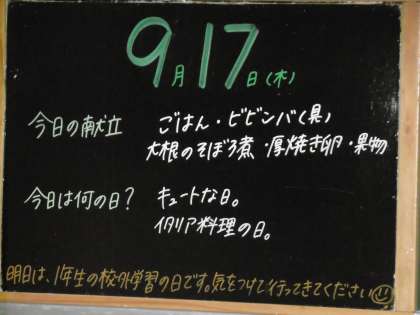 9月17日(木)
今日の献立 ごはん・ビビンバ(具)
大根のそぼろ煮・厚焼き卵・果物
今日は何の日? キュートな日。
イタリア料理の日。
明日は、1年生の校外学習の日です。気をつけて行ってきてください